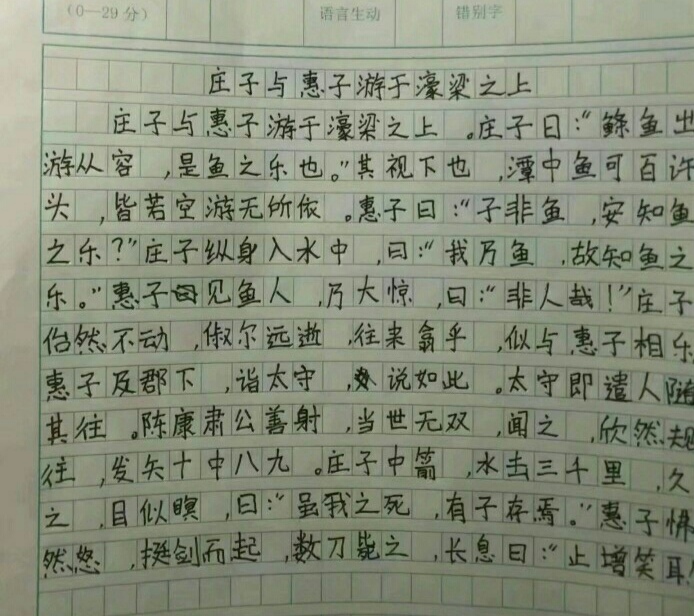 （0—29分）
语言生动
错别字
庄子与惠子游于濠梁之上
庄子与惠子游于濠梁之上。庄子日:"鲦鱼出
游从容,是鱼之乐也。"其视下也,潭中鱼可百许
头,皆若空游无所依。惠子曰:"子非鱼,安知鱼
之乐?"庄子纵身入水中,曰:"我乃鱼,故知鱼之
乐。"惠子见鱼人,乃大惊,曰:"非人哉!"庄子
佁然不动,俶尔远逝,往来翕乎,似与惠子相乐
惠子及郡下,诣太守,说如此。太守即遣人随
其往。陈康肃公善射,当世无双,闻之,欣然规
往,发矢十中八九。庄子中箭,水击三千里,久
之,目似瞑,曰:"虽我之死,有子存焉。"惠子怫
然怒,挺剑而起,数刀毙之,长息曰:"止增笑耳